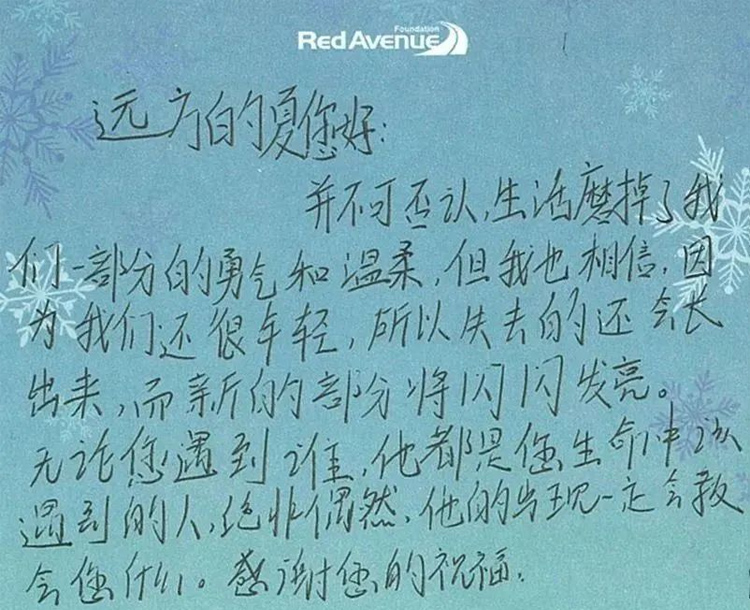 Foundation
Red Avenue
远方的夏您好:
并不可否认,生活磨掉了我
们一部分的勇气和温柔,但我也相信,因
为我们还很年轻,所以失去的还会长
出来,而新的部分将闪闪发亮。
无论您遇到谁,他都是您生命中该
遇到的人,绝非偶然,他的出现一定会教
会您什么。感谢您的祝福.